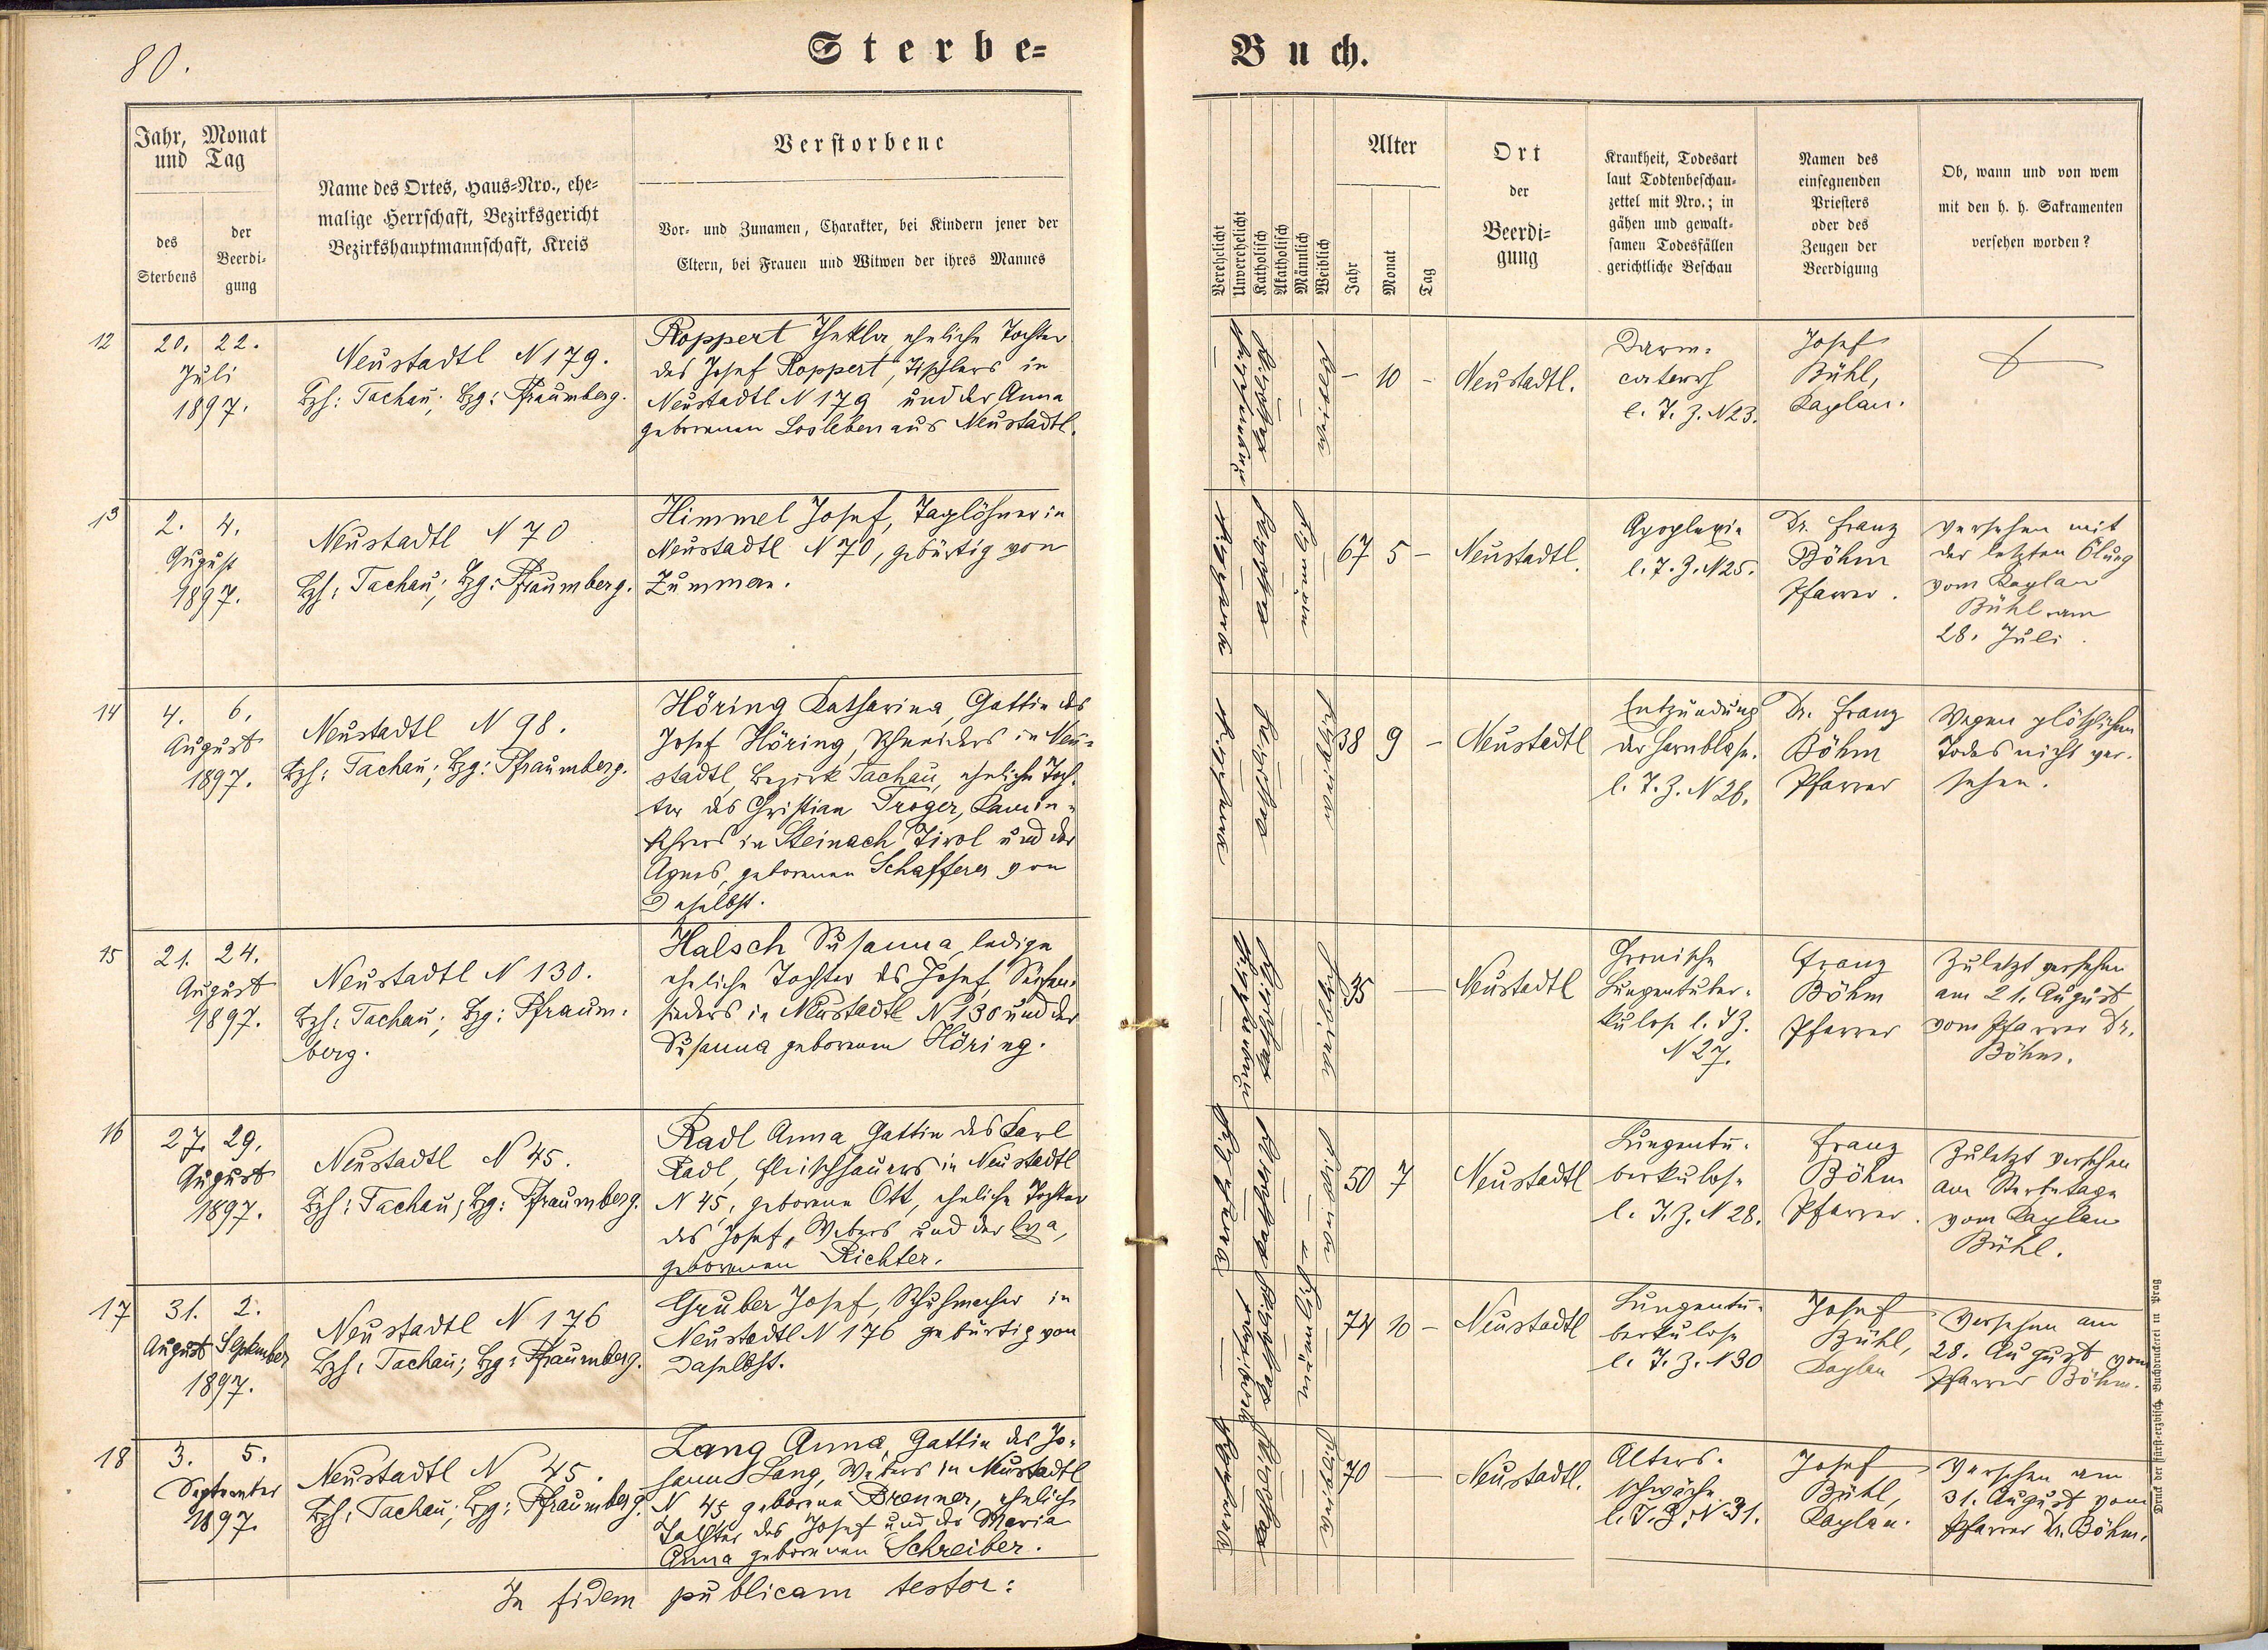 80.
Sterbe-
Buch.
Jahr, Monat
und Tag
des
Sterbens
der
Beerdi-
gung
Name des Ortes, Haus-Nro., ehe-
malige Herrschaft, Bezirksgericht
Bezirkshauptmannschaft, Kreis
Verstorbene
Vor- und Zunamen, Charakter, bei Kindern jener der
Eltern, bei Frauen und Witwen der ihres Mannes
Verehelicht
Unverehelicht
Katholisch
Akatholisch
Männlich
Weiblich
Alter
Jahr
Monat
Tag
Ort
der
Beerdi-
gung
Krankheit, Todesart
laut Todtenbeschau-
zettel mit Nro.; in
gähen und gewalt-
samen Todesfällen
gerichtliche Beschau
Namen des
einsegnenden
Priesters
oder des
Zeugen der
Beerdigung
Ob, wann und von wem
mit den h. h. Sakramenten
versehen worden?
12
20. 22.
Juli
1897.
Neustadtl N 179.
Bzh: Tachau; Bzg: Pfraumberg.
Roppert Thekla, eheliche Tochter
des Josef Roppert, Tischlers in
Neustadtl N 179 und der Anna
geborenen Losleben aus Neustadtl.
unverehelicht
katholisch
weiblich
– 10 –
Neustadtl.
Darm-
catarrh
l. T. Z. N 23.
Josef
Bühl,
Kaplan.
13
2. 4.
August
1897.
Neustadtl N 70
Bzh: Tachau; Bzg: Pfraumberg.
Himmel Josef, Taglöhner in
Neustadtl N 70, gebürtig von
Zummern.
katholisch
67 5 –
Neustadtl.
Apoplexie
l. T. Z. N 25.
Dr. Franz
Böhm
Pfarrer.
versehen mit
der letzten Ölung
vom Kaplan
Bühl am
28. Juli.
14
4. 6.
August
1897.
Neustadtl N 98.
Bzh: Tachau; Bzg: Pfraumberg.
Höring Katharina, Gattin des
Josef Höring, Schneiders in Neu-
stadtl, Bezirk Tachau, eheliche Toch-
ter des Christian Troger, Kamin-
kehrers in Steinach Tirol und der
Agnes, geborenen Schafferer von
Daselbst.
38 9 –
Neustadtl
Entzündung
der Harnblase.
l. T. Z. N 26.
Dr. Franz
Böhm
Pfarrer
Wegen plötzlichen
Todes nicht ver-
sehen.
15
21. 24.
August
1897.
Neustadtl N 130.
Bzh: Tachau; Bzg: Pfraum-
berg.
Halsch Susanna, ledige
eheliche Tochter des Josef, Seifen-
sieders in Neustadtl N 130 und der
Susanna geborenen Höring.
35 –
Neustadtl
Chronische
Lungentuber-
kulose l. T Z.
N 27.
Franz
Böhm
Pfarrer
Zuletzt versehen
am 21. August
vom Pfarrer Dr.
Böhm.
16
27. 29.
August
1897.
Neustadtl N 45.
Bzh: Tachau; Bzg: Pfraumberg.
Radl Anna, Gattin des Karl
Radl, Fleischhauers in Neustadtl
N 45, geborene Ott, eheliche Tochter
des Josef, Webers und der Eva,
geborenen Richter.
50 7
Neustadtl
Lungentu-
berkulose
l. T. Z. N 28.
Franz
Böhm
Pfarrer.
Zuletzt versehen
am Sterbetage
vom Kaplan
Bühl.
17
31. 2.
August September
1897.
Neustadtl N 176
Bzh: Tachau; Bzg: Pfraumberg.
Gruber Josef, Schuhmacher in
Neustadtl N 176 gebürtig von
Daselbst.
74 10 –
Neustadtl
Lungentu-
berkulose
l. T. Z. N 30
Josef
Bühl,
Kaplan
Versehen am
28. August vom
Pfarrer Böhm.
18
3. 5.
September
1897.
Neustadtl N 45.
Bzh: Tachau; Bzg: Pfraumberg.
Lang Anna, Gattin des Jo-
hann Lang, Webers in Neustadtl
N 45 geborene Brenner, eheliche
Tochter des Josef und der Maria
Anna geborenen Schreiber.
70 –
Neustadtl.
Alters-
schwäche
l. T. Z. N 31.
Josef
Bühl,
Kaplan.
Versehen am
31. August vom
Pfarrer Dr. Böhm.
In fidem publicam testor:
Druck der fürst-erzbisch. Buchdruckerei in Prag